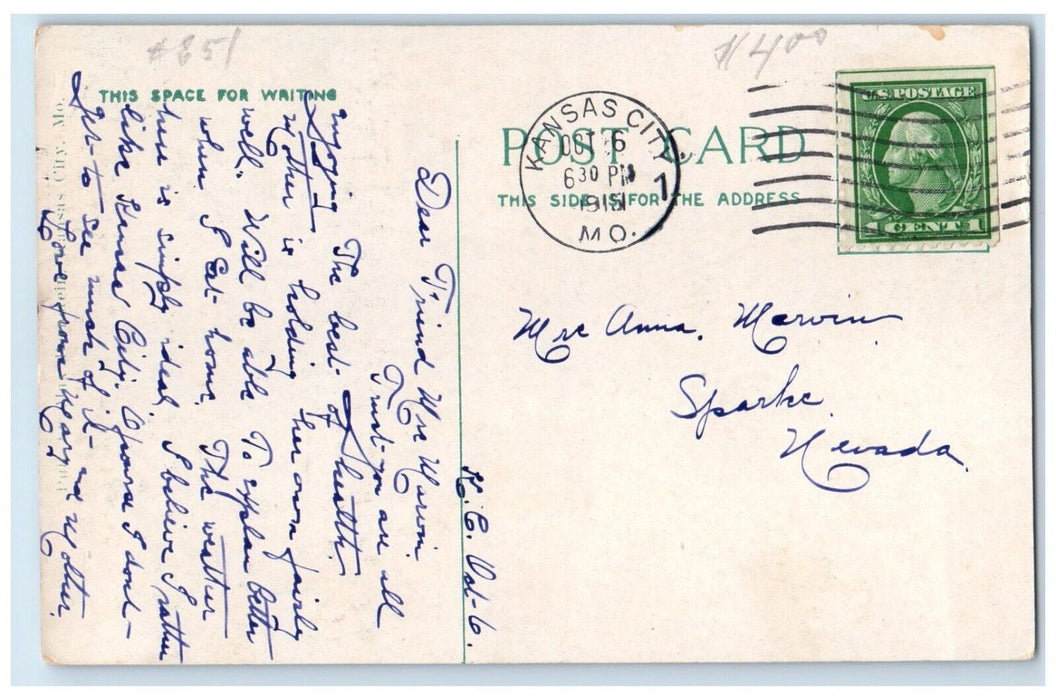 +851
$400
THIS SPACE FOR WRITING
POST CARD
THIS SIDE IS FOR THE ADDRESS
KANSAS CITY,
OCT 6
630 PM
1915
MO.
1
U.S. POSTAGE
1 CENT 1
Mrs Anna. Marvin
Sparks.
Nevada.
K. C. Oct-6.
Dear Friend Mrs Marvin.
Trust-you are all
enjoying The best-of health.
Mother is holding her own fairly
well. Will be able To explain better
when I Get-home. The weather
here is simply ideal. I believe I rather
like Kansas City, of course I dont-
Get-to see much of it-
Love from Mary and Mother.
Kansas City, Mo.